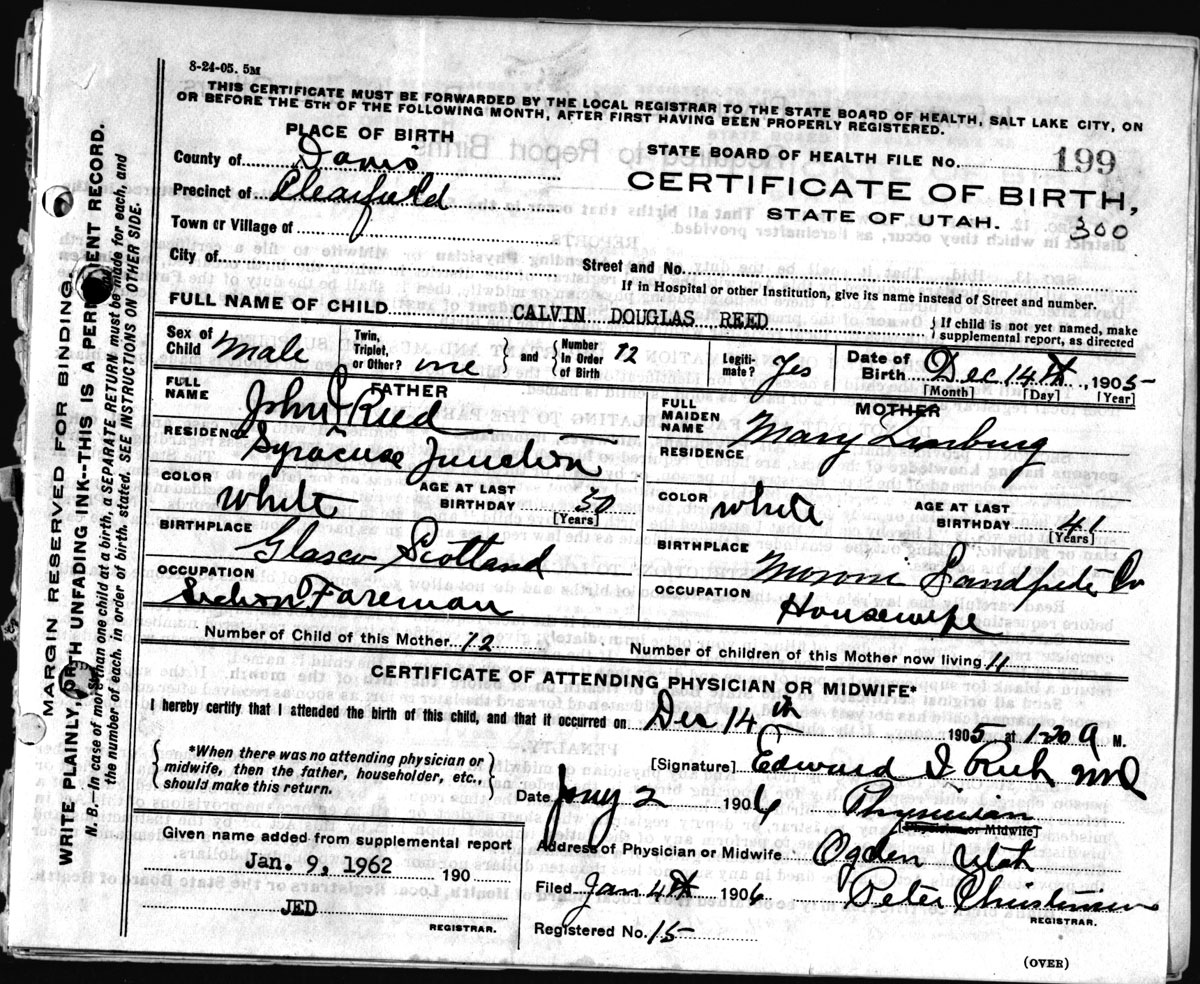 8-24-05. 5M
THIS CERTIFICATE MUST BE FORWARDED BY THE LOCAL REGISTRAR TO THE STATE BOARD OF HEALTH, SALT LAKE CITY, ON
OR BEFORE THE 5TH OF THE FOLLOWING MONTH, AFTER FIRST HAVING BEEN PROPERLY REGISTERED.
PLACE OF BIRTH
STATE BOARD OF HEALTH FILE No. 199
County of Davis
CERTIFICATE OF BIRTH,
Precinct of Clearfield
STATE OF UTAH. 300
Town or Village of
City of
Street and No.
If in Hospital or other Institution, give its name instead of Street and number.
FULL NAME OF CHILD CALVIN DOUGLAS REED
{ If child is not yet named, make
supplemental report, as directed
Sex of Child Male
Twin, Triplet, or Other? one } and { Number In Order of Birth 12
Legitimate? Yes
Date of Birth Dec 14th, 1905
[Month] [Day] [Year]
FATHER
FULL NAME John Reed
RESIDENCE Syracuse Junction
COLOR White
AGE AT LAST BIRTHDAY 50
[Years]
BIRTHPLACE Glasco Scotland
OCCUPATION Section Foreman
MOTHER
FULL MAIDEN NAME Mary
RESIDENCE
COLOR white
AGE AT LAST BIRTHDAY 41
[Years]
BIRTHPLACE Moroni Co
OCCUPATION Housewife
Number of Child of this Mother 12
Number of children of this Mother now living 11
CERTIFICATE OF ATTENDING PHYSICIAN OR MIDWIFE*
I hereby certify that I attended the birth of this child, and that it occurred on Dec 14th
1905 at M.
{ *When there was no attending physician or
midwife, then the father, householder, etc.,
should make this return. }
[Signature] Edward I Rich MD
Date Jany 2 1906 Physician
[Physician or Midwife]
Address of Physician or Midwife Ogden Utah
Filed Jan 4th 1906 Peter Christensen
REGISTRAR.
Registered No. 15
Given name added from supplemental report
Jan. 9, 1962 190
JED
REGISTRAR.
(OVER)
MARGIN RESERVED FOR BINDING.
WRITE PLAINLY, WITH UNFADING INK--THIS IS A PERMANENT RECORD.
N. B.—In case of more than one child at a birth, a SEPARATE RETURN must be made for each, and
the number of each, in order of birth, stated. SEE INSTRUCTIONS ON OTHER SIDE.